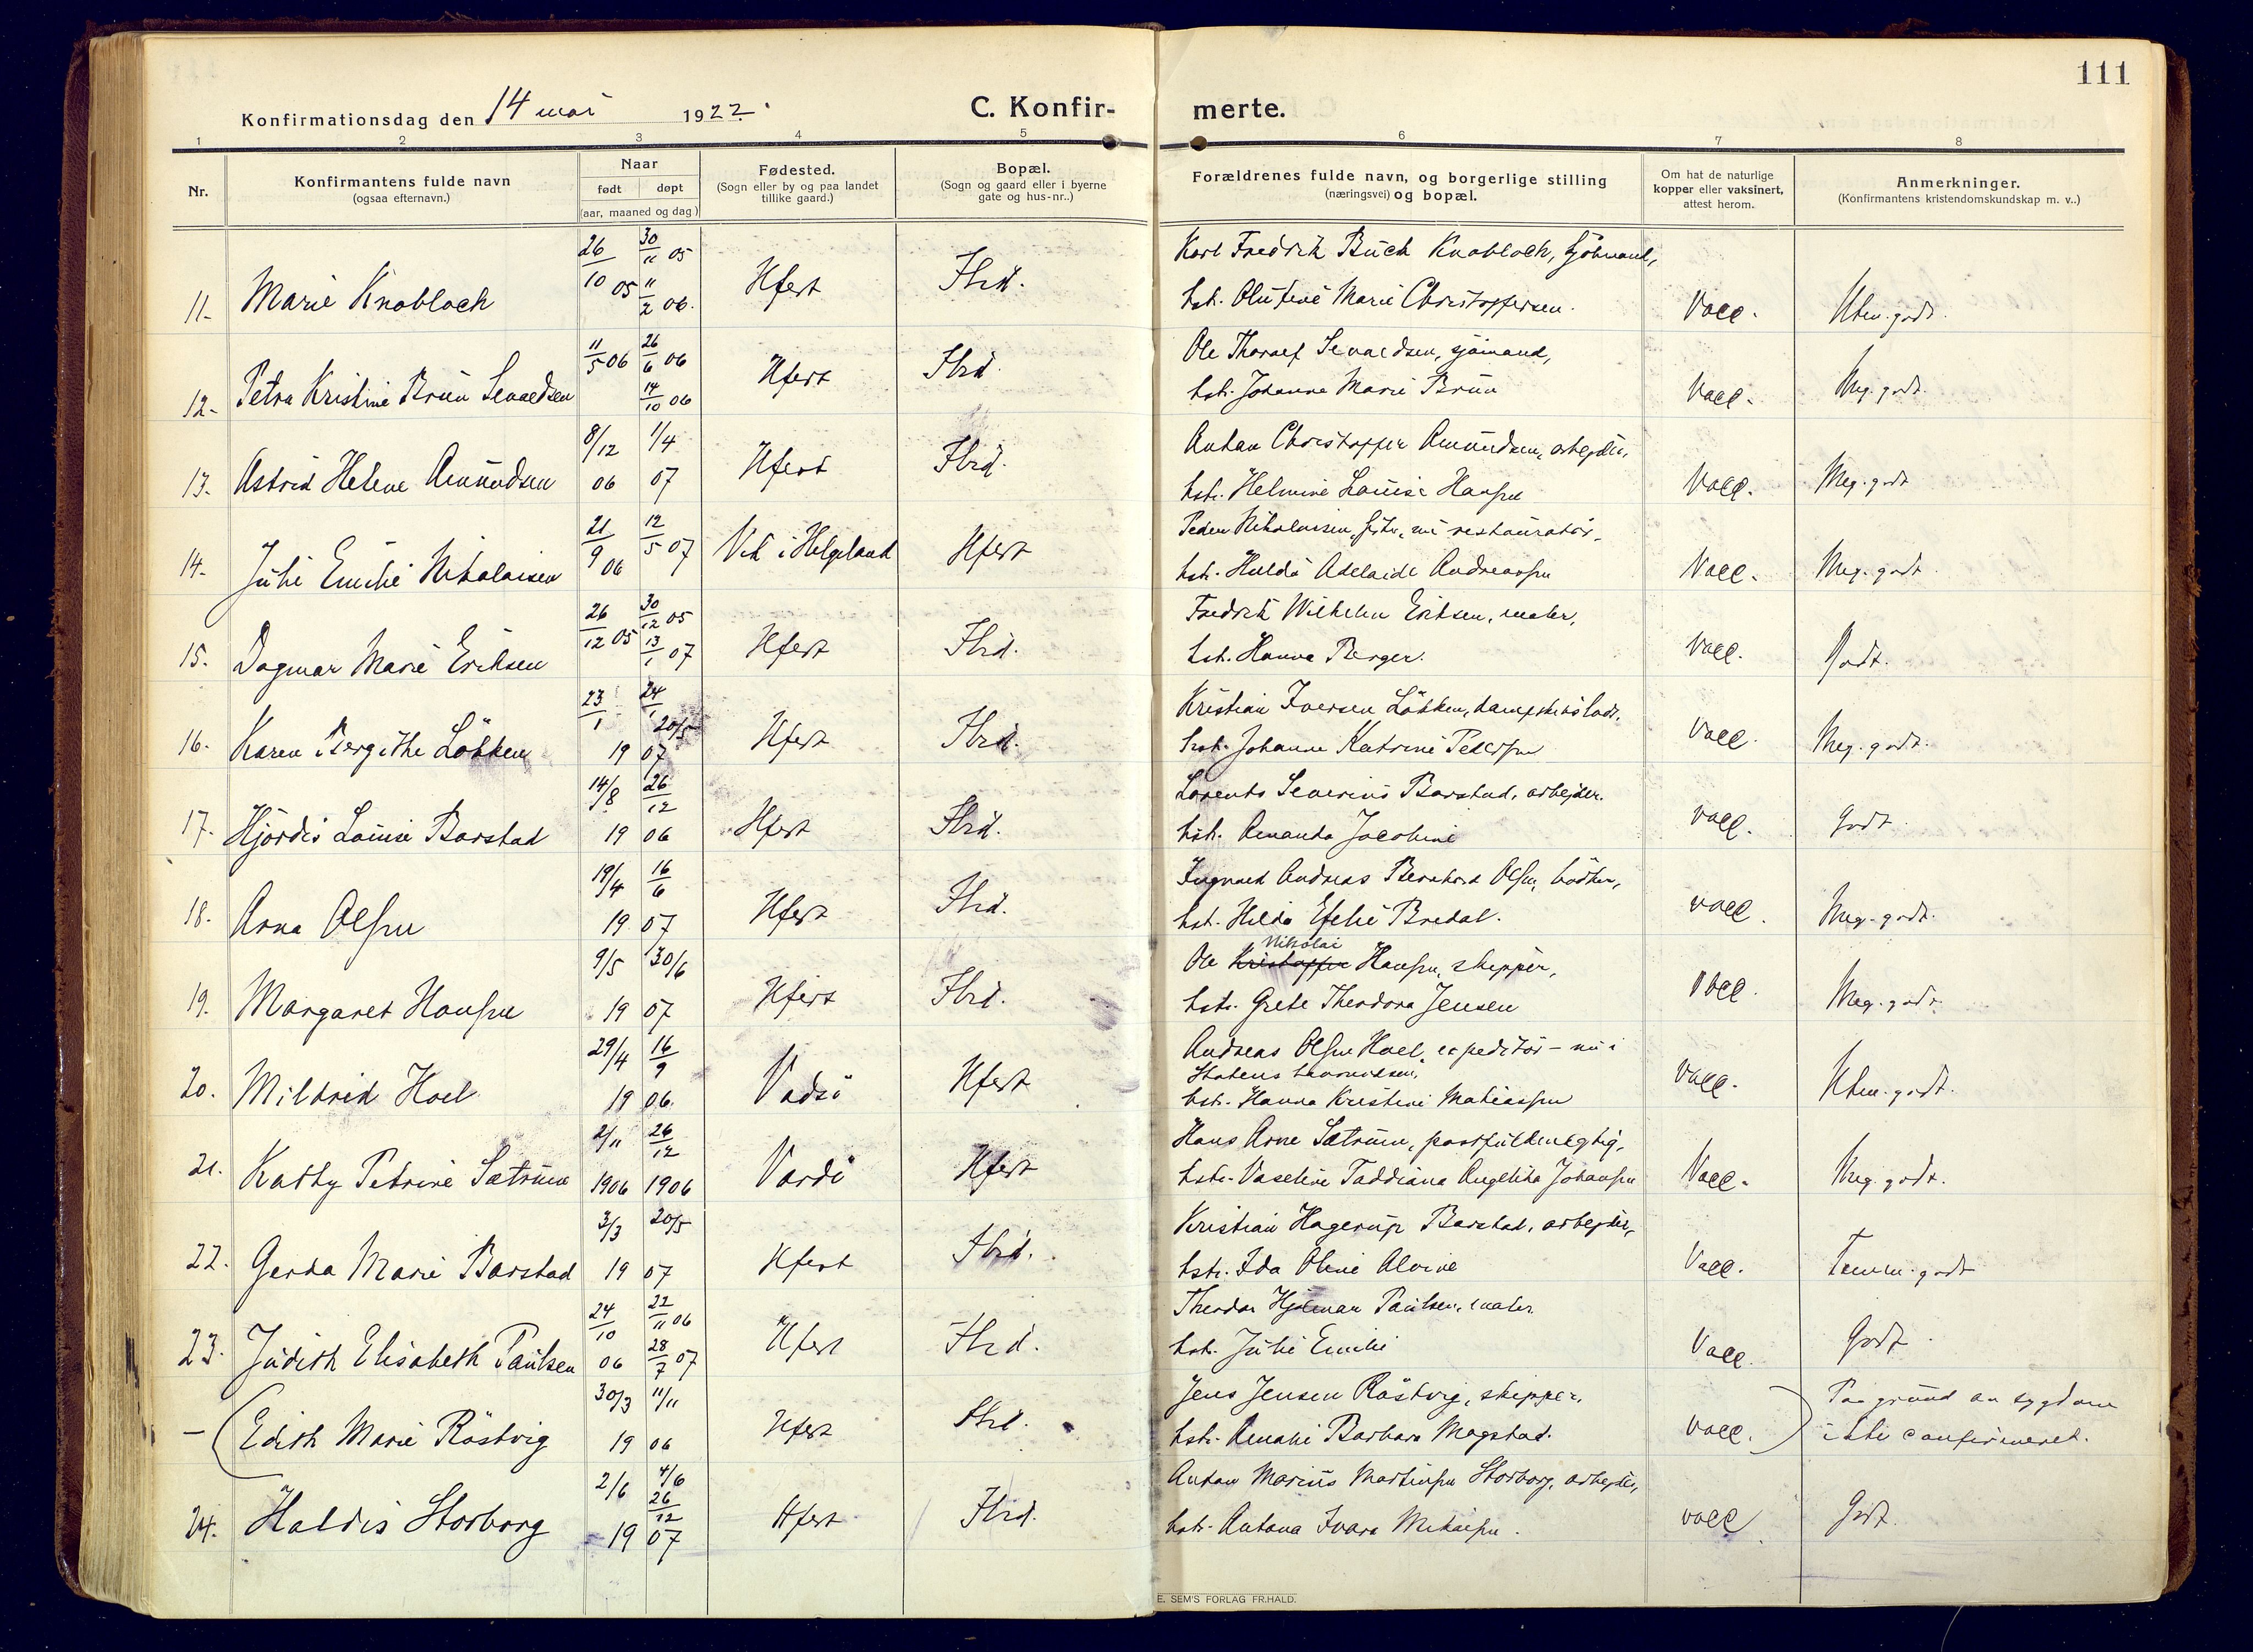 111
Konfirmationsdag den 14 mai 1922. C. Konfir- merte.
1 2 3 4 5 6 7 8
Nr.
Konfirmantens fulde navn
(ogsaa efternavn.)
Naar
født døpt
(aar, maaned og dag)
Fødested.
(Sogn eller by og paa landet
tillike gaard.)
Bopæl.
(Sogn og gaard eller i byerne
gate og hus-nr..)
Forældrenes fulde navn, og borgerlige stilling
(næringsvei) og bopæl.
Om hat de naturlige
kopper eller vaksinert,
attest herom.
Anmerkninger.
(Konfirmantens kristendomskundskap m. v..)
11. Marie Knobloch 26/10 05 30/11 05 11/2 06. Hfest Ibid. Karl Fredrik Buck Knobloch, sjömand,
hst. Olufine Marie Christoffersen. Vacc. Uten. godt.
12. Petra Kristine Brun Sevaldsen 11/5 06 26/6 06 14/10 06 Hfest Ibid. Ole Thoralf Sevaldsen, sjömand,
hst. Johanna Marie Brun Vacc. Meg. godt.
13. Astrid Helene Amundsen 8/12 06 1/4 07 Hfest Ibid. Anton Christoffer Amundsen, arbejder,
hst. Helmine Louise Hansen Vacc. Meg. godt
14. Julie Emilie Nikolaisen 21/9 06 12/5 07 Vik i Helgeland Hfest Peder Nikolaisen, nu restauratör,
hst. Hulda Adelaide Andreassen Vacc. Meg. godt
15. Dagmar Marie Eriksen 26/12 05 30/12 05 13/1 07 Hfest Ibid. Fredrik Wilhelm Eriksen, maler,
hst. Hanna Berger. Vacc. Godt.
16. Karen Bergithe Lökken 23/1 19 24/1 20/5 07 Hfest Ibid. Kristian Iversen Lökken,
hst. Johanne Katrine Pedersen Vacc. Meg. godt.
17. Hjördis Louise Barstad 14/8 19 26/12 06 Hfest Ibid. Lorents Severins Barstad, arbejder.
hst. Amanda Jacobine Vacc. Godt.
18. Arna Olsen 19/4 19 16/6 07 Hfest Ibid. Ingvald Andreas Bernhard Olsen, bödker,
hst. Hilda Efelie Bredal. Vacc. Meg. godt.
19. Margaret Hansen 9/5 19 30/6 07 Hfest Ibid. Ole Kristoffer Nikolai Hansen, skipper,
hst. Grete Theodora Jensen Vacc. Meg. godt.
20. Mildrid Hoel 29/4 19 16/9 06. Vadsö Hfest Andreas Olsen Hoel, expeditör - nu i
Statens
hst. Hanna Kristine Mathiassen Vacc. Uten. godt.
21. Kathy Petrine Sætrum 2/11 1906 26/12 1906 Vardö Hfest Hans Arne Sætrum, postfuldmegtig,
hst. Vaseline Taddiana Angelika Johansen Vacc. Meg. godt.
22. Gerda Marie Barstad 3/3 19 20/5 07 Hfest Ibid. Kristian Hagerup Barstad, arbejder,
hst. Ida Oline Alvine Vacc. Temm. godt
23. Judith Elisabeth Paulsen 24/10 06 22/11 06 28/7 07 Hfest Ibid. Theodor Hjalmar Paulsen, maler
hst. Julie Emilie Vacc. Godt.
- (Edith Marie Röstvig 30/3 19 11/11 06 Hfest Ibid. Jens Jensen Röstvig, skipper,
hst. Amalie Barbara Magstad. Vacc. ) Paa grund av sygdom
ikke confirmeret.
24. Haldis Storborg 2/6 19 4/6 26/12 07 Hfest Ibid. Anton Marius Martinsen Storborg, arbejder,
hst. Antona Ivara Mikalsen. Vacc. Godt.
E. SEM'S FORLAG FR.HALD.